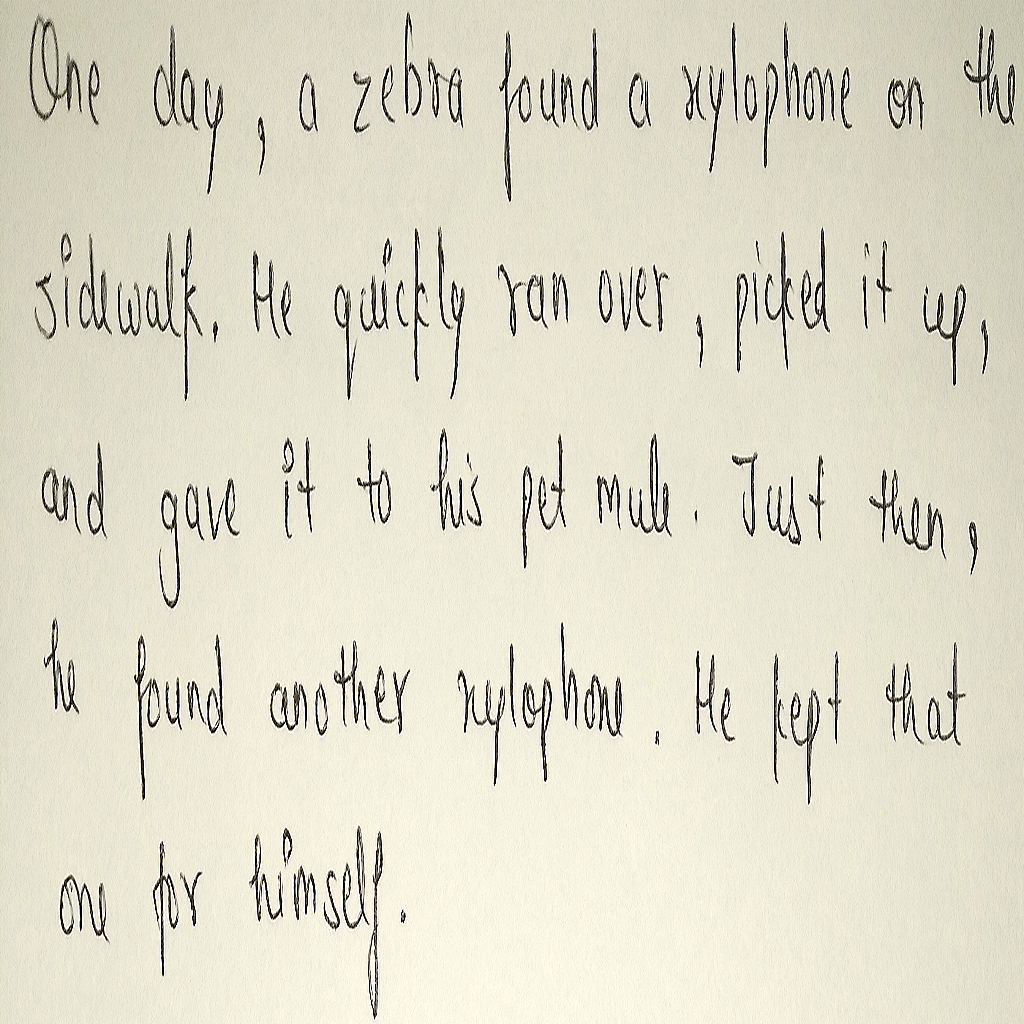 One day, a zebra found a xylophone on the
sidewalk. He quickly ran over, picked it up,
and gave it to his pet mule. Just then,
he found another xylophone. He kept that
one for himself.